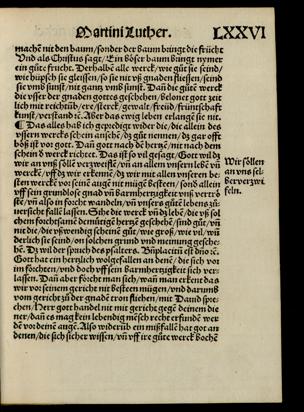 Martini Luther. LXXVI
machē nit den baum / sonder der baum bringt die frücht
Vnd als Christus sagt / Ein böser baum bringt nymer
ein gůte frucht. Derhalbē alle werck / wie gůt sie seind /
wie hüpsch sie gleissen / so sie nit vß gnadē fliessen / seind
sie vmb sunst / nit gantz vmb sunst. Dañ die gůtē werck
die vsser der gnadē gottes geschehē / belonet gott zeit
lich mit reichtūb / ere / sterck / gewalt / freüd / früntschafft
kunst / verstand ꝛc. Aber das ewig leben erlangē sie nit.
¶ Das alles hab ich gepredigt wider die / die allein des
vssern wercks schein ansehē / vñ gůt nennen / dz gar offt
böß ist vor gott. Dañ gott nach dē hertzē / nit nach dem
schein dē werck richtet. Das ist so vil gesagt / Gott wil dz
wir an vns sollē verzweiflē / vñ an allem vnsern lebē vñ
werckē / vff dz wir erkennē / dz wir mit allen vnseren be-
sten werckē vor seinē augē nit mügē besteen / sond̄ allein
vff sein grundloße gnad vñ barmhertzigkeit vnß vertrö
stē / vñ also in forcht wandeln / vñ vnsers gůtē lebens zů-
uersicht fallē lassen. Sihe die werck vñ dz lebē / die vß sol
chem forchtsamē demütigē hertzē geschehē / sind gůt / vñ
nit die / die vßwendig scheinē gůt / wie groß / wie vil / wie
derlich sie seind / on solchen grund vnd meinung gesche-
hē. Dz wil der spruch des psalters. Bñplacitū est dño ꝛc.
Gott hat ein hertzlich wolgefallen an denē / die sich vor
im förchten / vnd doch vff sein barmhertzigkeit sich ver-
lassen. Dañ aber förcht man sich / wañ man erkent das
wir vor seinem gericht nit besteen mügen / vnd darumb
vom gericht zů der gnadē tron fliehen / mit Dauid spre-
chen / Herr gott handel nit mit gericht gegē deinem die
ner / dañ es mag kein lebendig mēsch recht erfundē wer
dē vor deinē augē. Also widerūb ein mißfallē hat got an
denen / die sich sicher wissen / vñ vff ire gůte werck bochē
Wir sollen
an vns sel-
ber verzwi
feln.